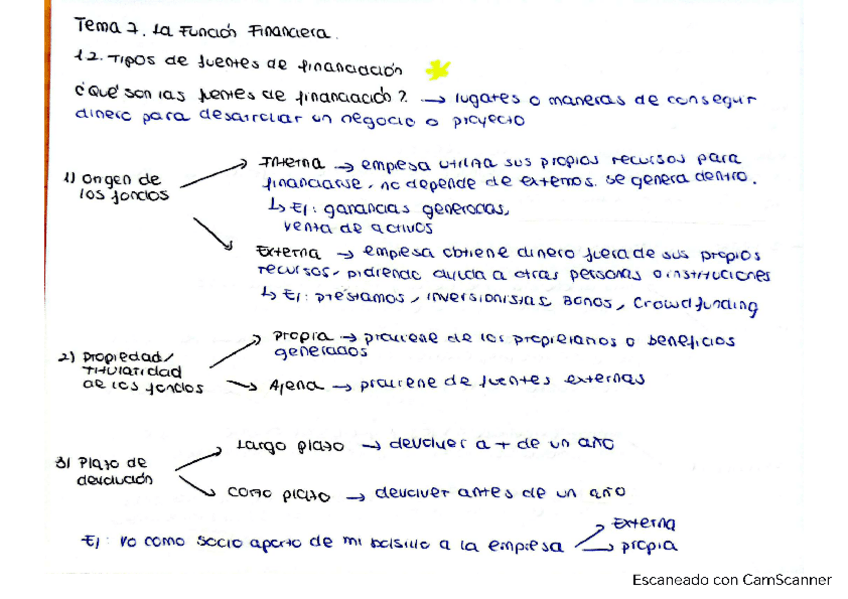 Tema 7. La Función Financiera.
1.2. Tipos de fuentes de financiación
¿Qué son las fuentes de financiación? → lugares o maneras de conseguir
dinero para desarrollar un negocio o proyecto
1) Origen de
los fondos
Interna → empresa utiliza sus propios recursos para
financiarse, no depende de externos. se genera dentro.
↳ Ej: ganancias generadas,
venta de activos
Externa → empresa obtiene dinero fuera de sus propios
recursos, pidiendo ayuda a otras personas o instituciones
↳ Ej: préstamos, inversionistas, Bonos, Crowdfunding
2) Propiedad/
titularidad
de los fondos
Propia → proviene de los propietarios o beneficios
generados
Ajena → proviene de fuentes externas
3) Plazo de
devolución
Largo plazo → devolver a + de un año
Corto plazo → devolver antes de un año
Ej: yo como socio aporto de mi bolsillo a la empresa
Externa
propia
Escaneado con CamScanner